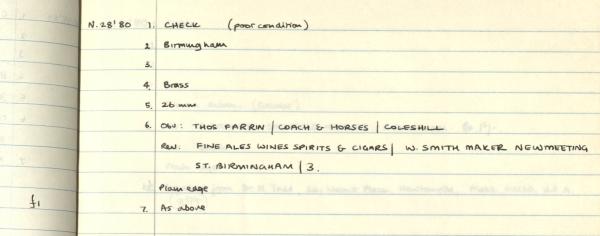 N.28'80 1. CHECK (poor condition)
2 Birmingham
3.
4. Brass
5. 26 mm
6. Obv: THOS FARRIN | COACH & HORSES | COLESHILL
Rev: FINE ALES WINES SPIRITS & CIGARS | W. SMITH MAKER NEWMEETING
ST. BIRMINGHAM | 3.
Plain edge
£1 7. As above